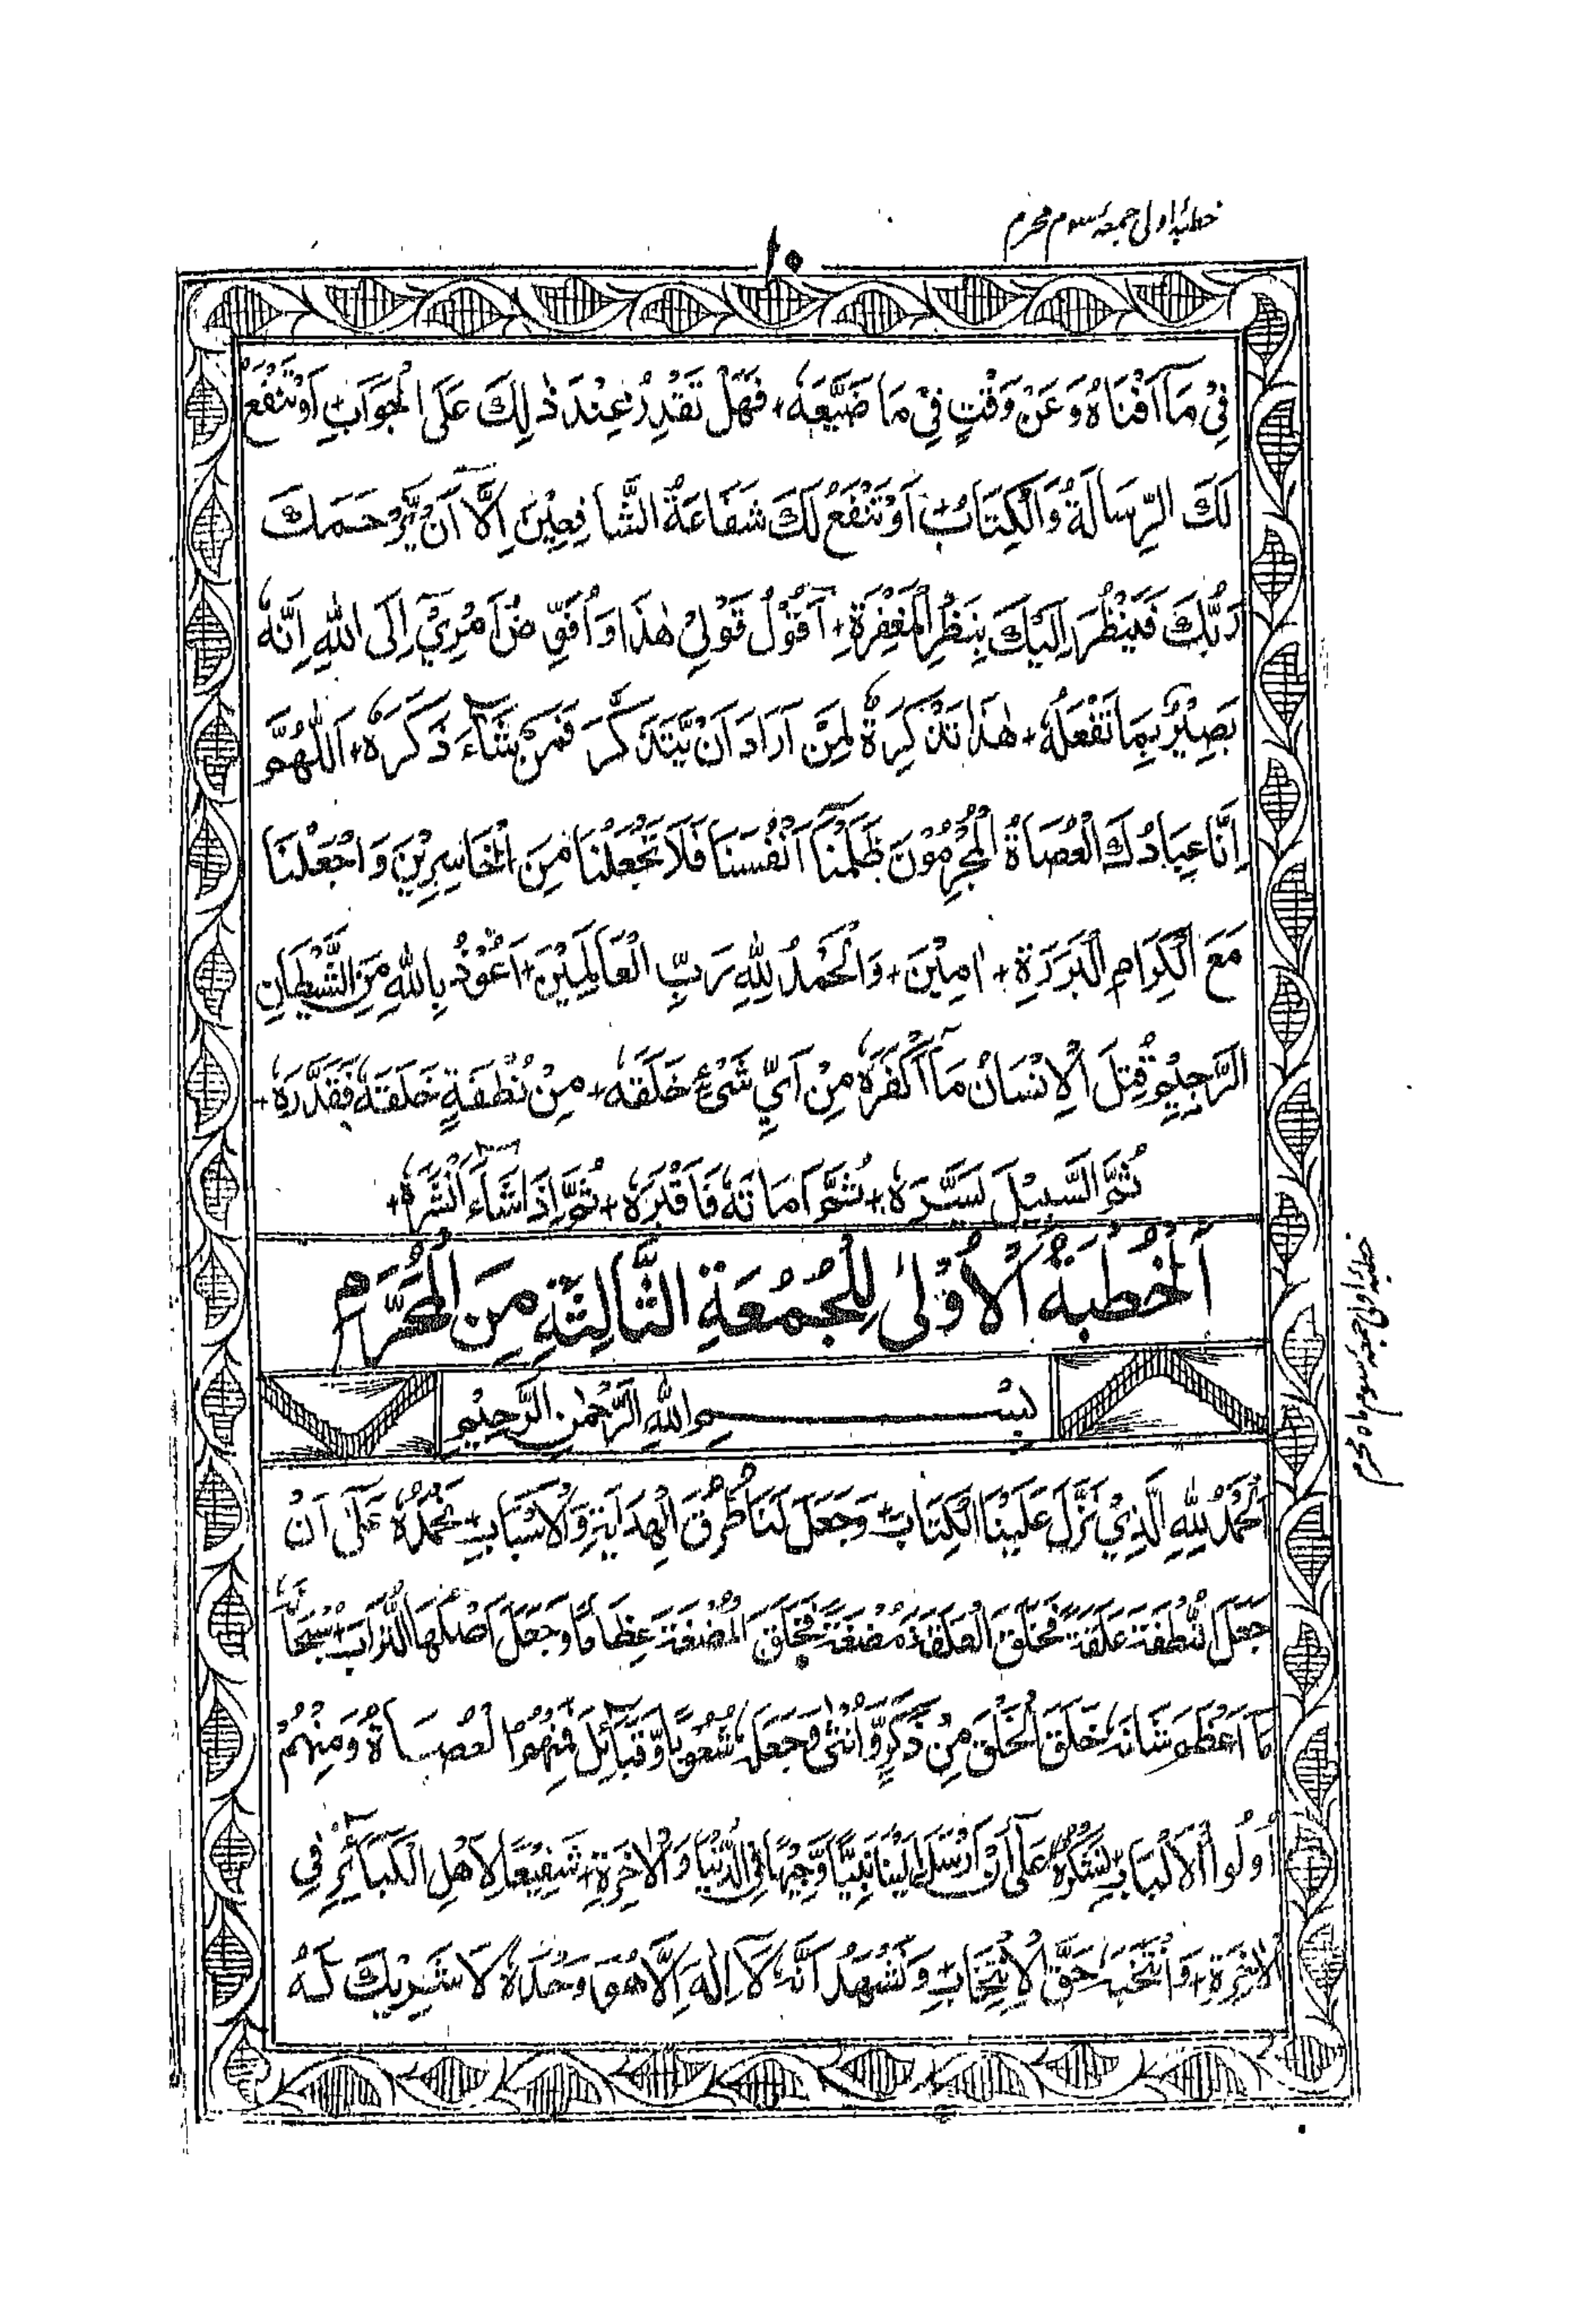 خطبۂ اولی جمعۂ سوم محرم
١٠
فِيْ مَآ اَفْنَاهُ وَعَنْ وَقْتٍ فِيْ مَا ضَيَّعَهٗ + فَهَلْ تَقْدِرُ عِنْدَ ذٰلِكَ عَلَى الْجَوَابِ + اَوْ تَنْفَعُ
لَكَ الرِّسَالَةُ وَالْكِتَابُ + اَوْ تَنْفَعُ لَكَ شَفَاعَةُ الشَّافِعِيْنَ اِلَّا اَنْ يَّرْحَمَكَ
رَبُّكَ فَيَنْظُرَ اِلَيْكَ بِنَظَرِ الْمَغْفِرَةِ + اَقُوْلُ قَوْلِيْ هٰذَا وَاُفَوِّضُ اَمْرِيْ اِلَى اللّٰهِ اِنَّهٗ
بَصِيْرٌ بِمَا تَفْعَلُهٗ + هٰذَا تَذْكِرَةٌ لِّمَنْ اَرَادَ اَنْ يَّتَذَكَّرَ فَمَنْ شَآءَ ذَكَرَهٗ + اَللّٰهُمَّ
اِنَّا عِبَادُكَ الْعُصَاةُ الْمُجْرِمُوْنَ ظَلَمْنَا اَنْفُسَنَا فَلَا تَجْعَلْنَا مِنَ الْخَاسِرِيْنَ وَاجْعَلْنَا
مَعَ الْكِرَامِ الْبَرَرَةِ + اٰمِيْنَ + وَالْحَمْدُ لِلّٰهِ رَبِّ الْعَالَمِيْنَ + اَعُوْذُ بِاللّٰهِ مِنَ الشَّيْطَانِ
الرَّجِيْمِ قُتِلَ الْاِنْسَانُ مَآ اَكْفَرَهٗ مِنْ اَيِّ شَيْءٍ خَلَقَهٗ + مِنْ نُطْفَةٍ خَلَقَهٗ فَقَدَّرَهٗ +
ثُمَّ السَّبِيْلَ يَسَّرَهٗ + ثُمَّ اَمَاتَهٗ فَاَقْبَرَهٗ + ثُمَّ اِذَا شَآءَ اَنْشَرَهٗ +
اَلْخُطْبَةُ الْاُوْلٰى لِلْجُمُعَةِ الثَّالِثَةِ مِنَ الْمُحَرَّمِ
بِسْمِ اللّٰهِ الرَّحْمٰنِ الرَّحِيْمِ
اَلْحَمْدُ لِلّٰهِ الَّذِيْ نَزَّلَ عَلَيْنَا الْكِتَابَ + وَجَعَلَ لَنَا طُرُقَ الْهِدَايَةِ وَالْاَسْبَابِ + نَحْمَدُهٗ عَلٰى اَنْ
جَعَلَ النُّطْفَةَ عَلَقَةً فَخَلَقَ الْعَلَقَةَ مُضْغَةً فَخَلَقَ الْمُضْغَةَ عِظَامًا وَجَعَلَ اَصْلَهَا التُّرَابَ + سُبْحَانَهٗ
مَا اَعْظَمَ شَانَهٗ خَلَقَ الْخَلْقَ مِنْ ذَكَرٍ وَّاُنْثٰى وَجَعَلَهٗ شُعُوْبًا وَّقَبَآئِلَ فَمِنْهُمُ الْعُصَاةُ وَمِنْهُمْ
اُولُوا الْاَلْبَابِ + نَشْكُرُهٗ عَلٰى اَنْ اَرْسَلَ اِلَيْنَا نَبِيًّا وَّجِيْهًا فِي الدُّنْيَا وَالْاٰخِرَةِ + شَفِيْعًا لِاَهْلِ الْكَبَآئِرِ فِي
الْاٰخِرَةِ + وَانْتَخَبَهٗ حَقَّ الْاِنْتِخَابِ + وَنَشْهَدُ اَنَّهٗ لَآ اِلٰهَ اِلَّا هُوَ وَحْدَهٗ لَا شَرِيْكَ لَهٗ
خطبۂ اولی جمعۂ سوم ماہ محرم